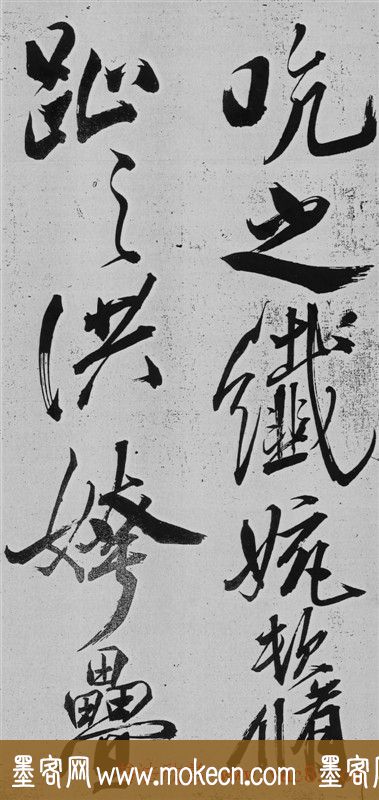 吭之纖婉頓脩
趾之洪姱疊
墨客网www.mokecn.com 墨客网